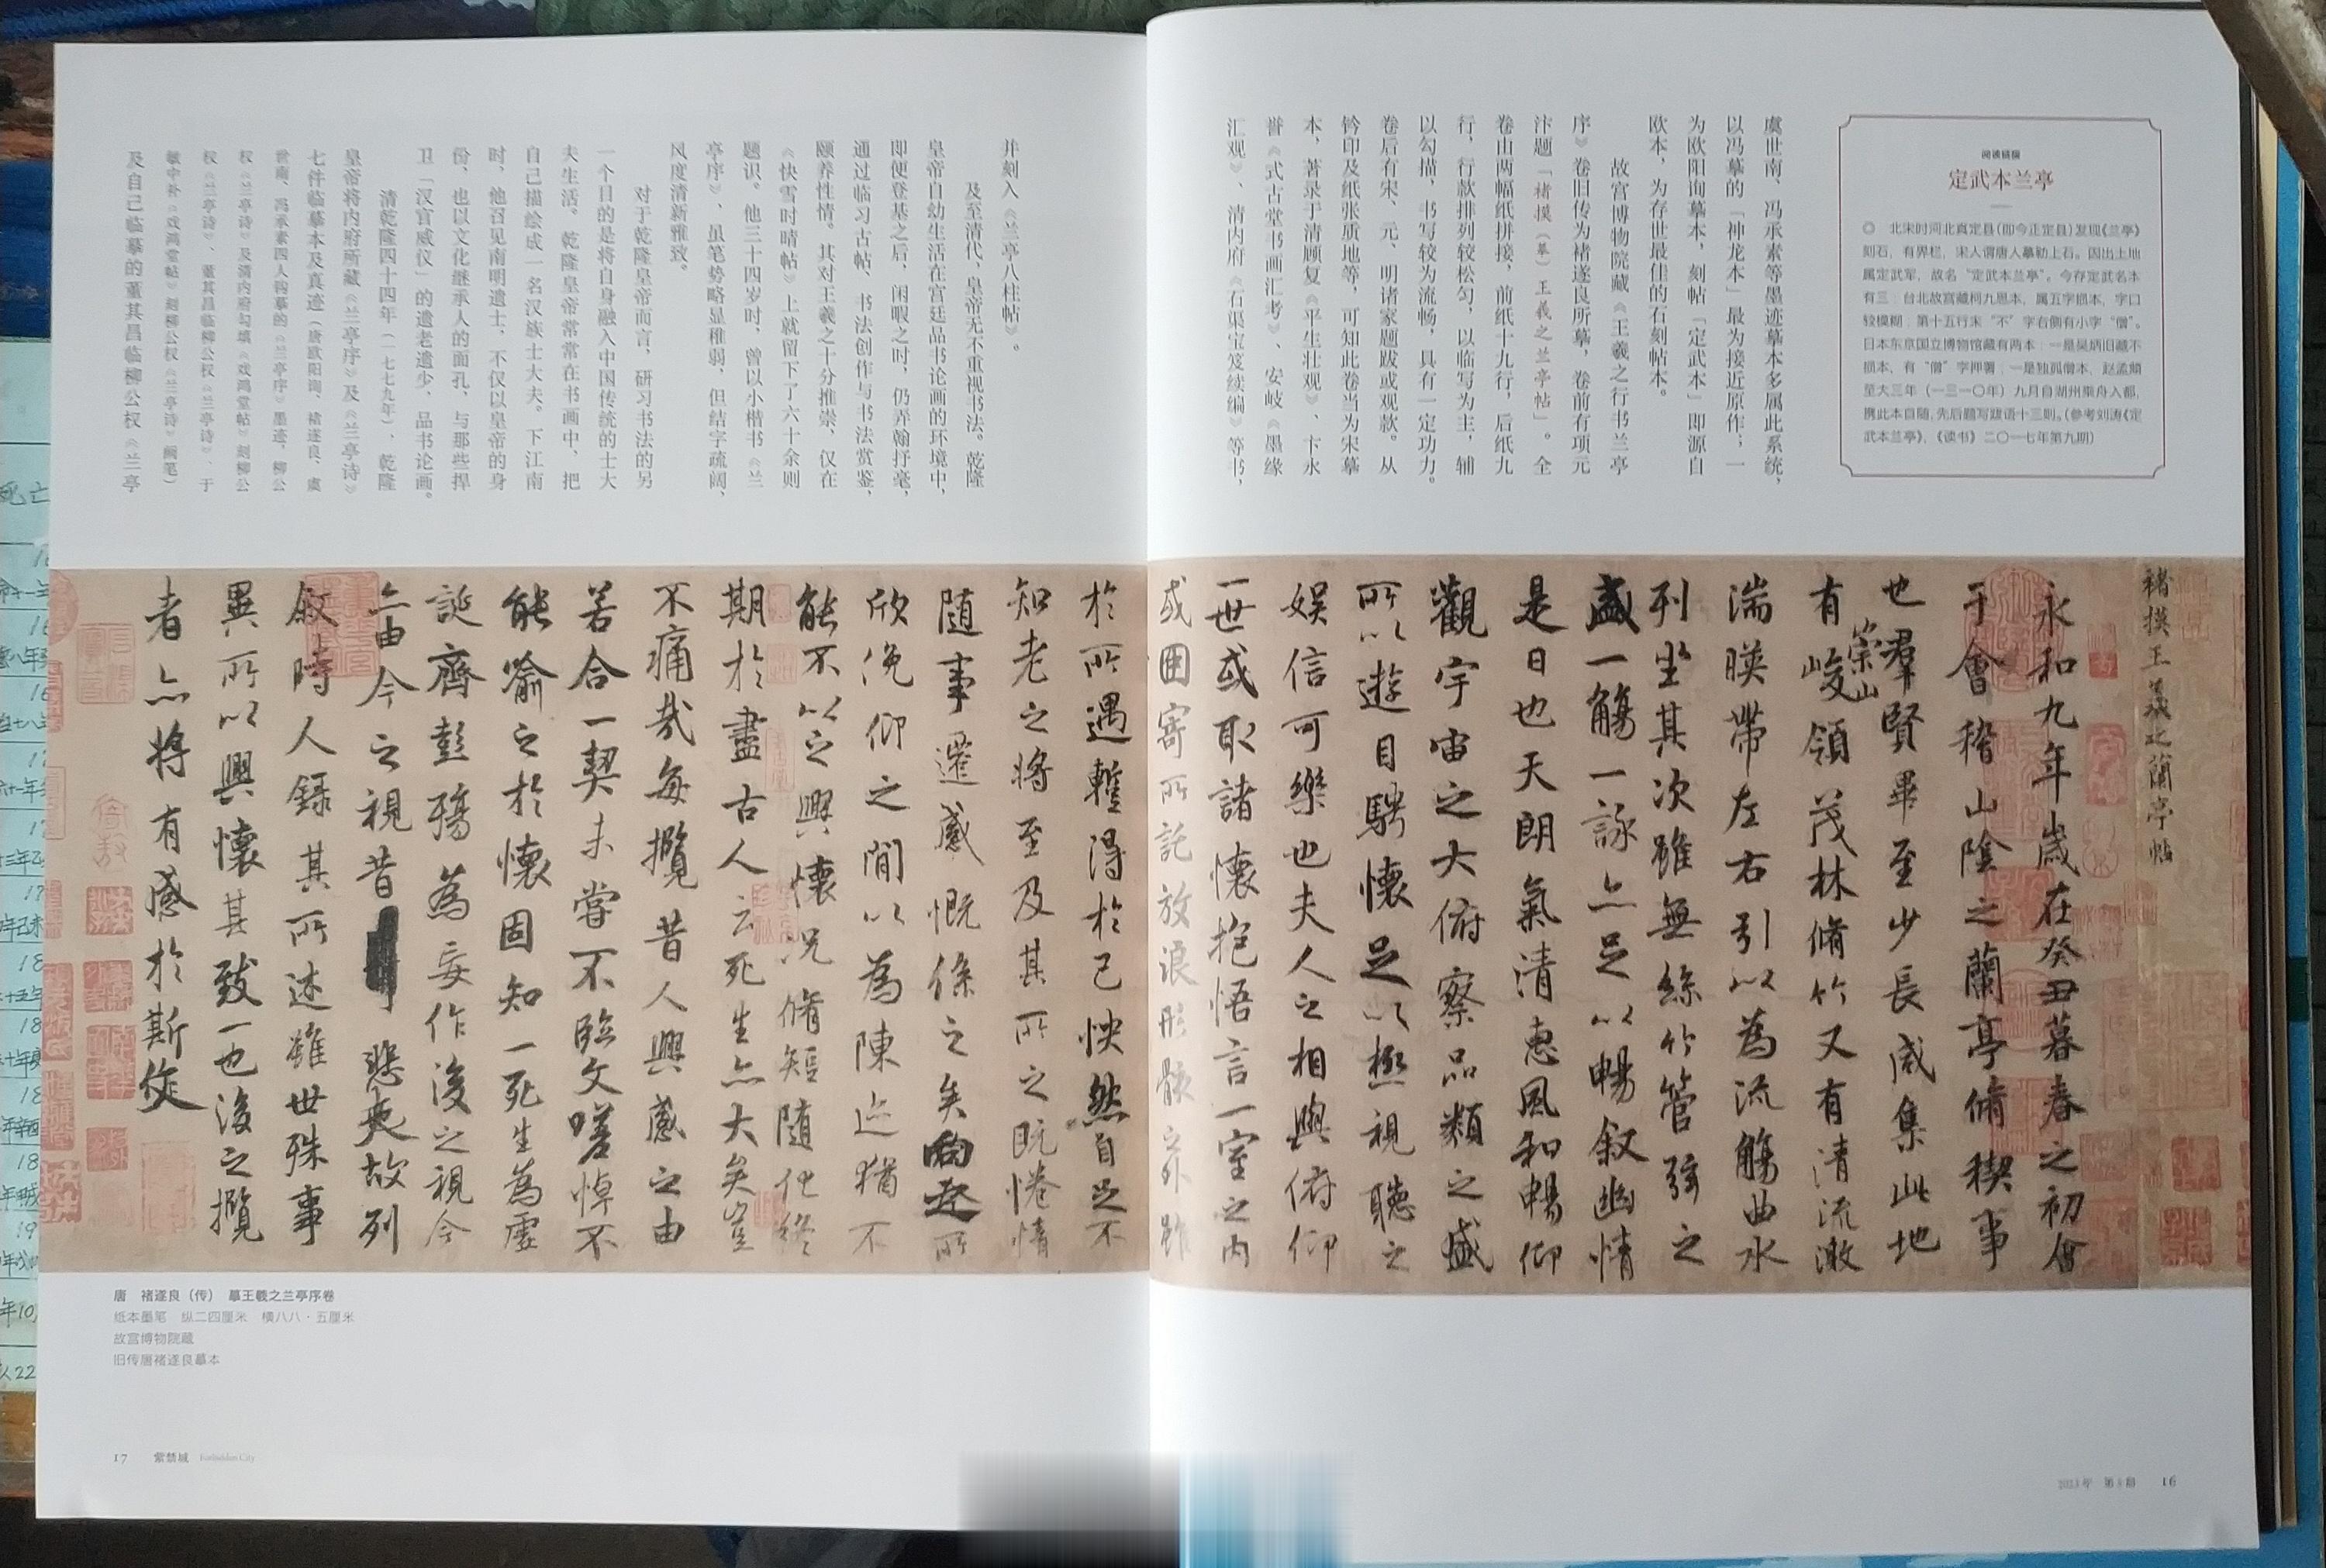 阅读链接
定武本兰亭
◎ 北宋时河北真定县(即今正定县)发现《兰亭》
刻石，有界栏，宋人谓唐人摹勒上石。因出土地
属定武军，故名“定武本兰亭”。今存定武名本
有三：台北故宫藏柯九思本，属五字损本，字口
较模糊，第十五行末“不”字右侧有小字“僧”。
日本东京国立博物馆藏有两本：一是吴炳旧藏不
损本，有“僧”字押署；一是独孤僧本，赵孟頫
至大三年（一三一〇年）九月自湖州乘舟入都，
携此本自随，先后题写跋语十三则。(参考刘涛《定
武本兰亭》，《读书》二〇一七年第九期)
虞世南、冯承素等墨迹摹本多属此系统，
以冯摹的「神龙本」最为接近原作；一
为欧阳询摹本，刻帖「定武本」即源自
欧本，为存世最佳的石刻帖本。
故宫博物院藏《王羲之行书兰亭
序》卷旧传为褚遂良所摹，卷前有项元
汴题「褚摸（摹）王羲之兰亭帖」。全
卷由两幅纸拼接，前纸十九行，后纸九
行，行款排列较松匀，以临写为主，辅
以勾描，书写较为流畅，具有一定功力。
卷后有宋、元、明诸家题跋或观款。从
钤印及纸张质地等，可知此卷当为宋摹
本，著录于清顾复《平生壮观》、卞永
誉《式古堂书画汇考》、安岐《墨缘
汇观》、清内府《石渠宝笈续编》等书，
并刻入《兰亭八柱帖》。
及至清代，皇帝无不重视书法。乾隆
皇帝自幼生活在宫廷品书论画的环境中，
即便登基之后，闲暇之时，仍弄翰抒毫，
通过临习古帖、书法创作与书法赏鉴，
颐养性情。其对王羲之十分推崇，仅在
《快雪时晴帖》上就留下了六十余则
题识。他三十四岁时，曾以小楷书《兰
亭序》，虽笔势略显稚弱，但结字疏阔，
风度清新雅致。
对于乾隆皇帝而言，研习书法的另
一个目的是将自身融入中国传统的士大
夫生活。乾隆皇帝常常在书画中，把
自己描绘成一名汉族士大夫。下江南
时，他召见南明遗士，不仅以皇帝的身
份，也以文化继承人的面孔，与那些捍
卫「汉官威仪」的遗老遗少，品书论画。
清乾隆四十四年（一七七九年），乾隆
皇帝将内府所藏《兰亭序》及《兰亭诗》
七件临摹本及真迹（唐欧阳询、褚遂良、虞
世南、冯承素四人钩摹的《兰亭序》墨迹，柳公
权《兰亭诗》及清内府勾填《戏鸿堂帖》刻柳公
权《兰亭诗》、董其昌临柳公权《兰亭诗》、于
敏中补《戏鸿堂帖》刻柳公权《兰亭诗》阙笔）
及自己临摹的董其昌临柳公权《兰亭
褚摸王羲之蘭亭帖
永和九年歲在癸丑暮春之初會
于會稽山陰之蘭亭脩稧事
也羣賢畢至少長咸集此地
有崇山峻領茂林脩竹又有清流激
湍暎帶左右引以為流觴曲水
列坐其次雖無絲竹管弦之
盛一觴一詠亦足以暢叙幽情
是日也天朗氣清惠風和暢仰
觀宇宙之大俯察品類之盛
所以遊目騁懷足以極視聽之
娱信可樂也夫人之相與俯仰
一世或取諸懷抱悟言一室之内
或因寄所託放浪形骸之外雖
於所遇蹔得於己怏然自足不
知老之將至及其所之既惓情
隨事遷感慨係之矣向之所
欣俛仰之閒以為陳迹猶不
能不以之興懷況脩短隨化終
期於盡古人云死生亦大矣豈
不痛哉每攬昔人興感之由
若合一契未嘗不臨文嗟悼不
能喻之於懷固知一死生為虚
誕齊彭殤為妄作後之視今
亦由今之視昔 悲夫故列
叙時人錄其所述雖世殊事
異所以興懷其致一也後之攬
者亦將有感於斯文
唐 褚遂良（传） 摹王羲之兰亭序卷
纸本墨笔 纵二四厘米 横八八·五厘米
故宫博物院藏
旧传唐褚遂良摹本
17 紫禁城 Forbidden City
16